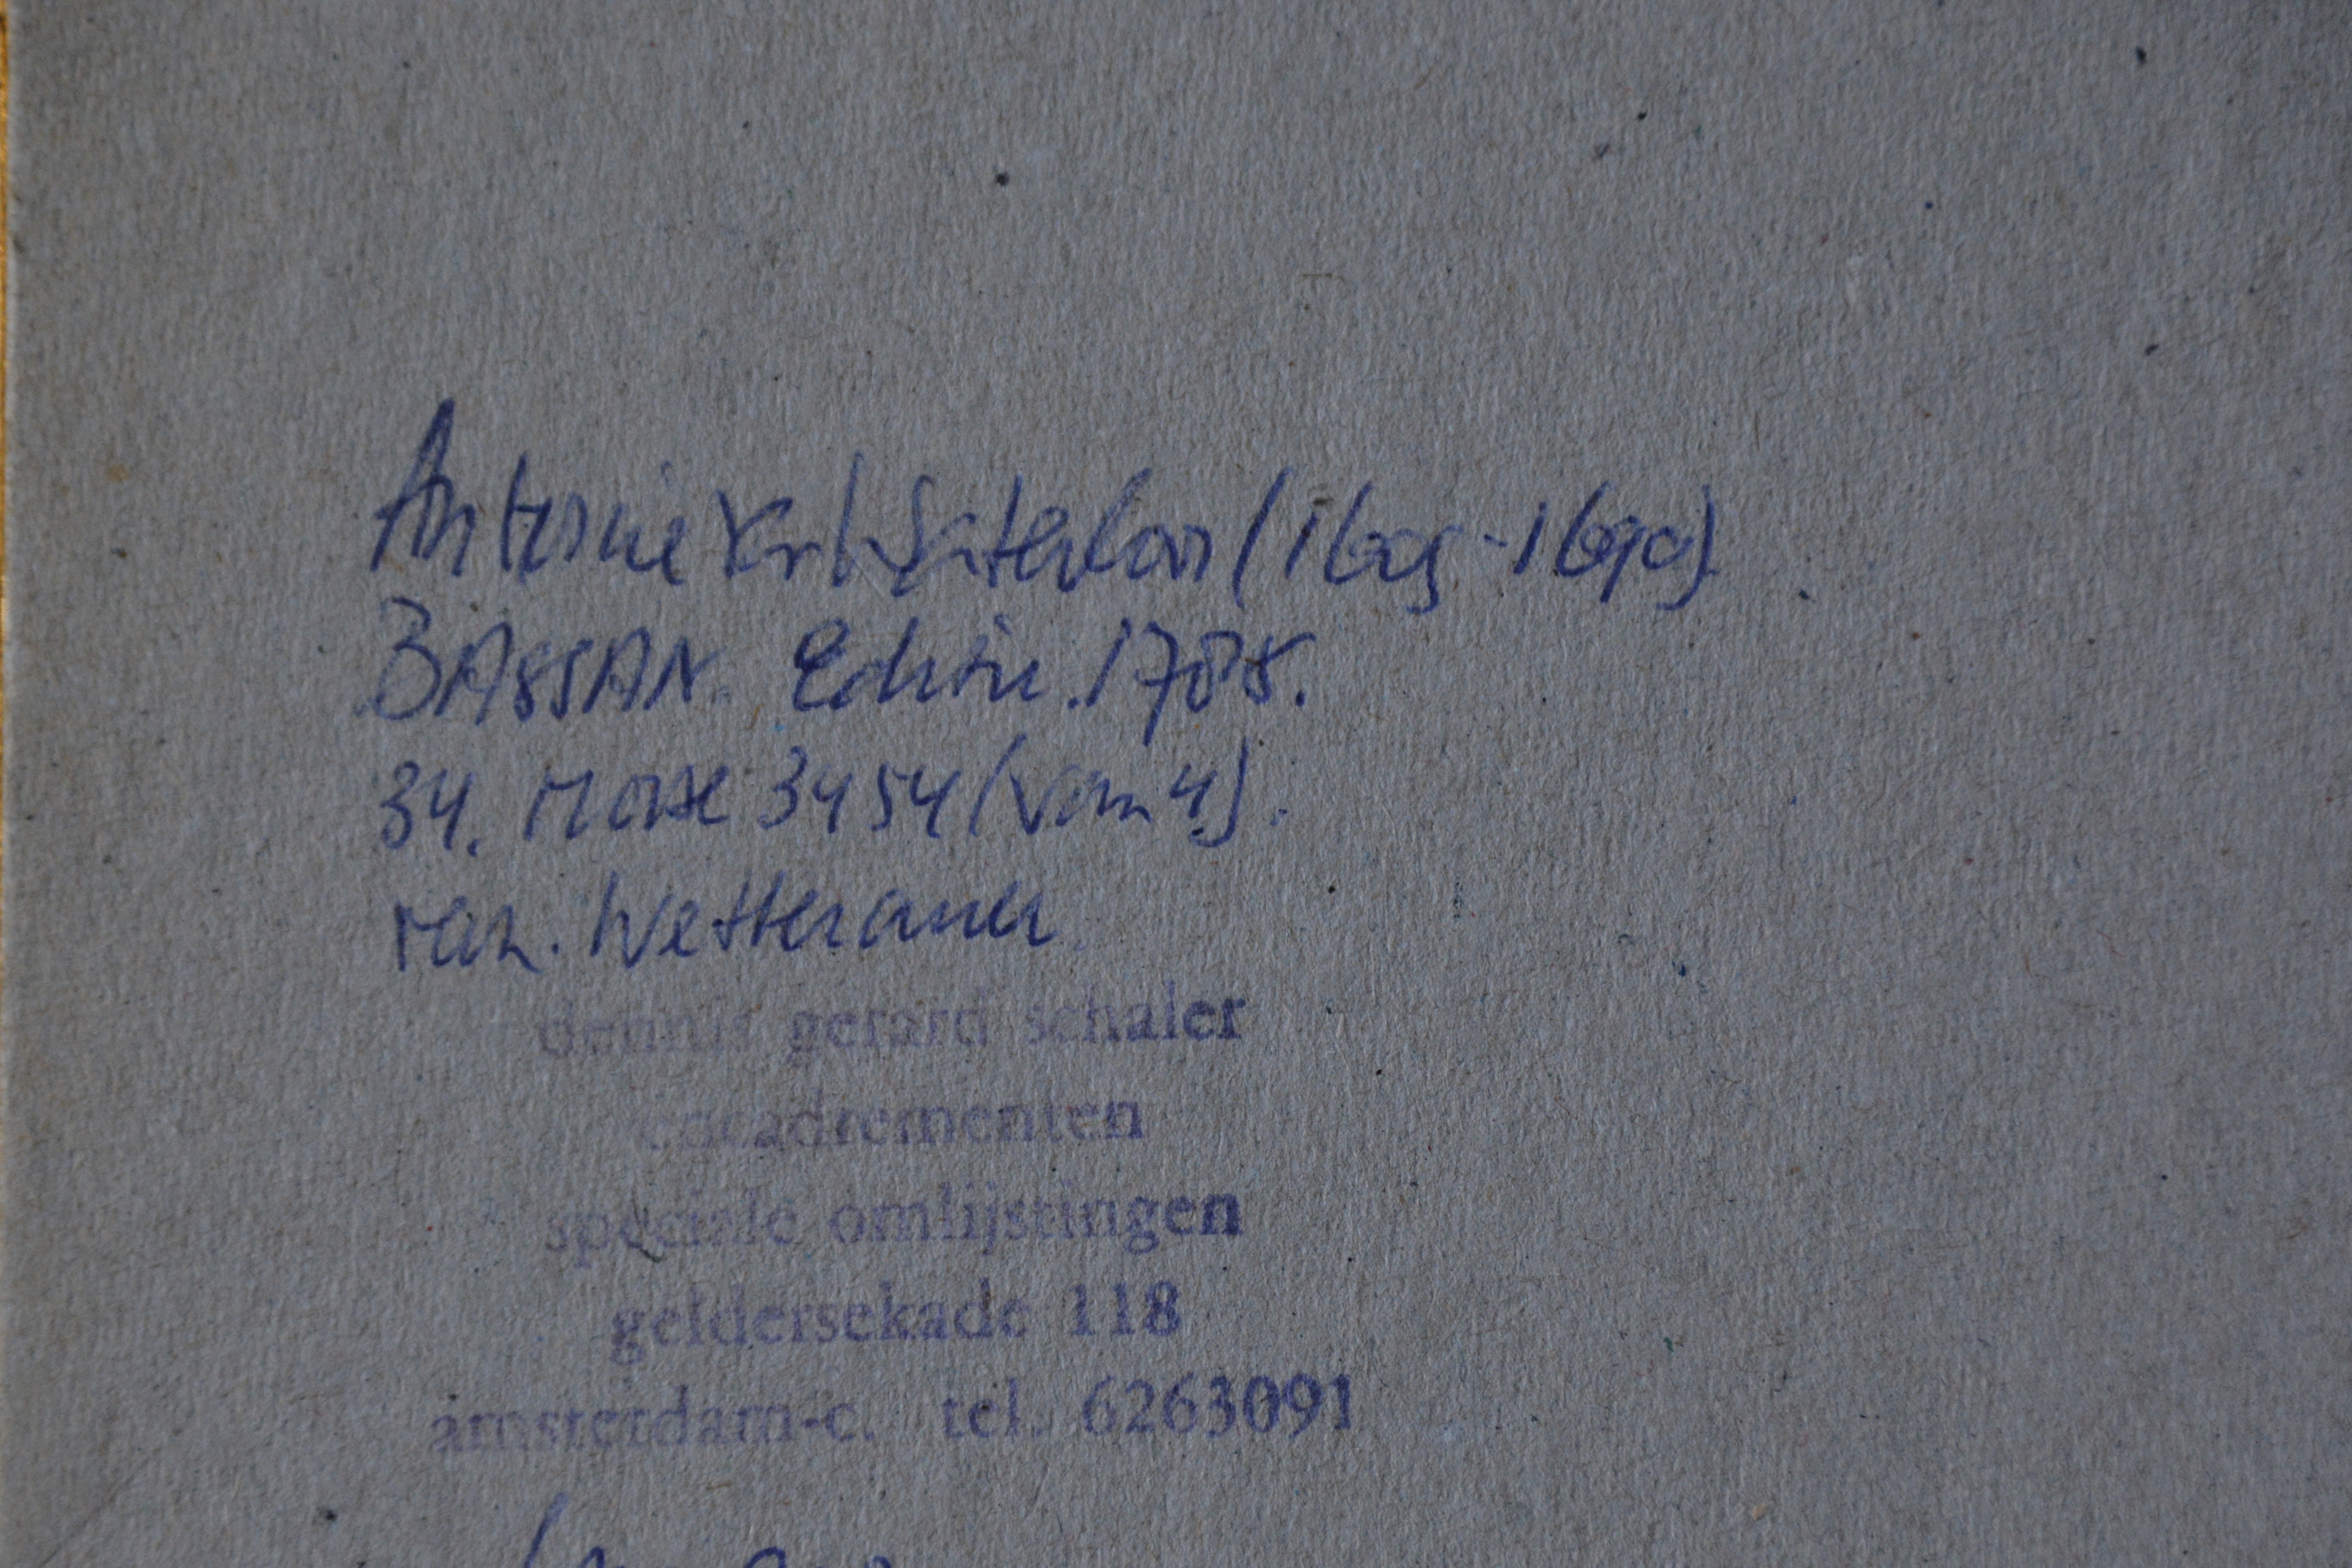 Antonie Waterloo (1609-1690)
BASSAN. Edition. 1785.
34. 3454 (van 4).
Wetterauer
dennis gerard schaler
encadrementen
speciale omlijstingen
geldersekade 118
amsterdam-c. tel. 6263091